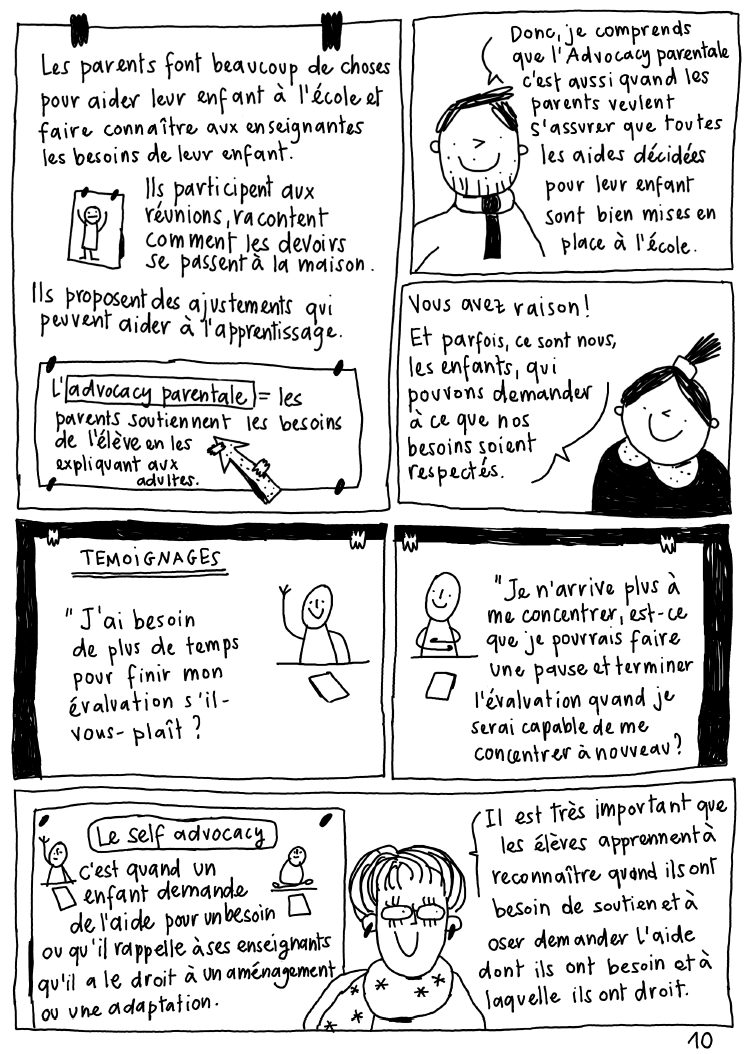 Les parents font beaucoup de choses
pour aider leur enfant à l'école et
faire connaître aux enseignantes
les besoins de leur enfant.
Ils participent aux
réunions, racontent
comment les devoirs
se passent à la maison.
Ils proposent des ajustements qui
peuvent aider à l'apprentissage.
L'advocacy parentale = les
parents soutiennent les besoins
de l'élève en les
expliquant aux
adultes.
Donc, je comprends
que l'Advocacy parentale
c'est aussi quand les
parents veulent
s'assurer que toutes
les aides décidées
pour leur enfant
sont bien mises en
place à l'école.
Vous avez raison!
Et parfois, ce sont nous,
les enfants, qui
pouvons demander
à ce que nos
besoins soient
respectés.
TEMOIGNAGES
"J'ai besoin
de plus de temps
pour finir mon
évaluation s'il-
vous-plaît ?
"Je n'arrive plus à
me concentrer, est-ce
que je pourrais faire
une pause et terminer
l'évaluation quand je
serai capable de me
concentrer à nouveau?
Le self advocacy
c'est quand un
enfant demande
de l'aide pour un besoin
ou qu'il rappelle à ses enseignants
qu'il a le droit à un aménagement
ou une adaptation.
Il est très important que
les élèves apprennent à
reconnaître quand ils ont
besoin de soutien et à
oser demander l'aide
dont ils ont besoin et à
laquelle ils ont droit.
10